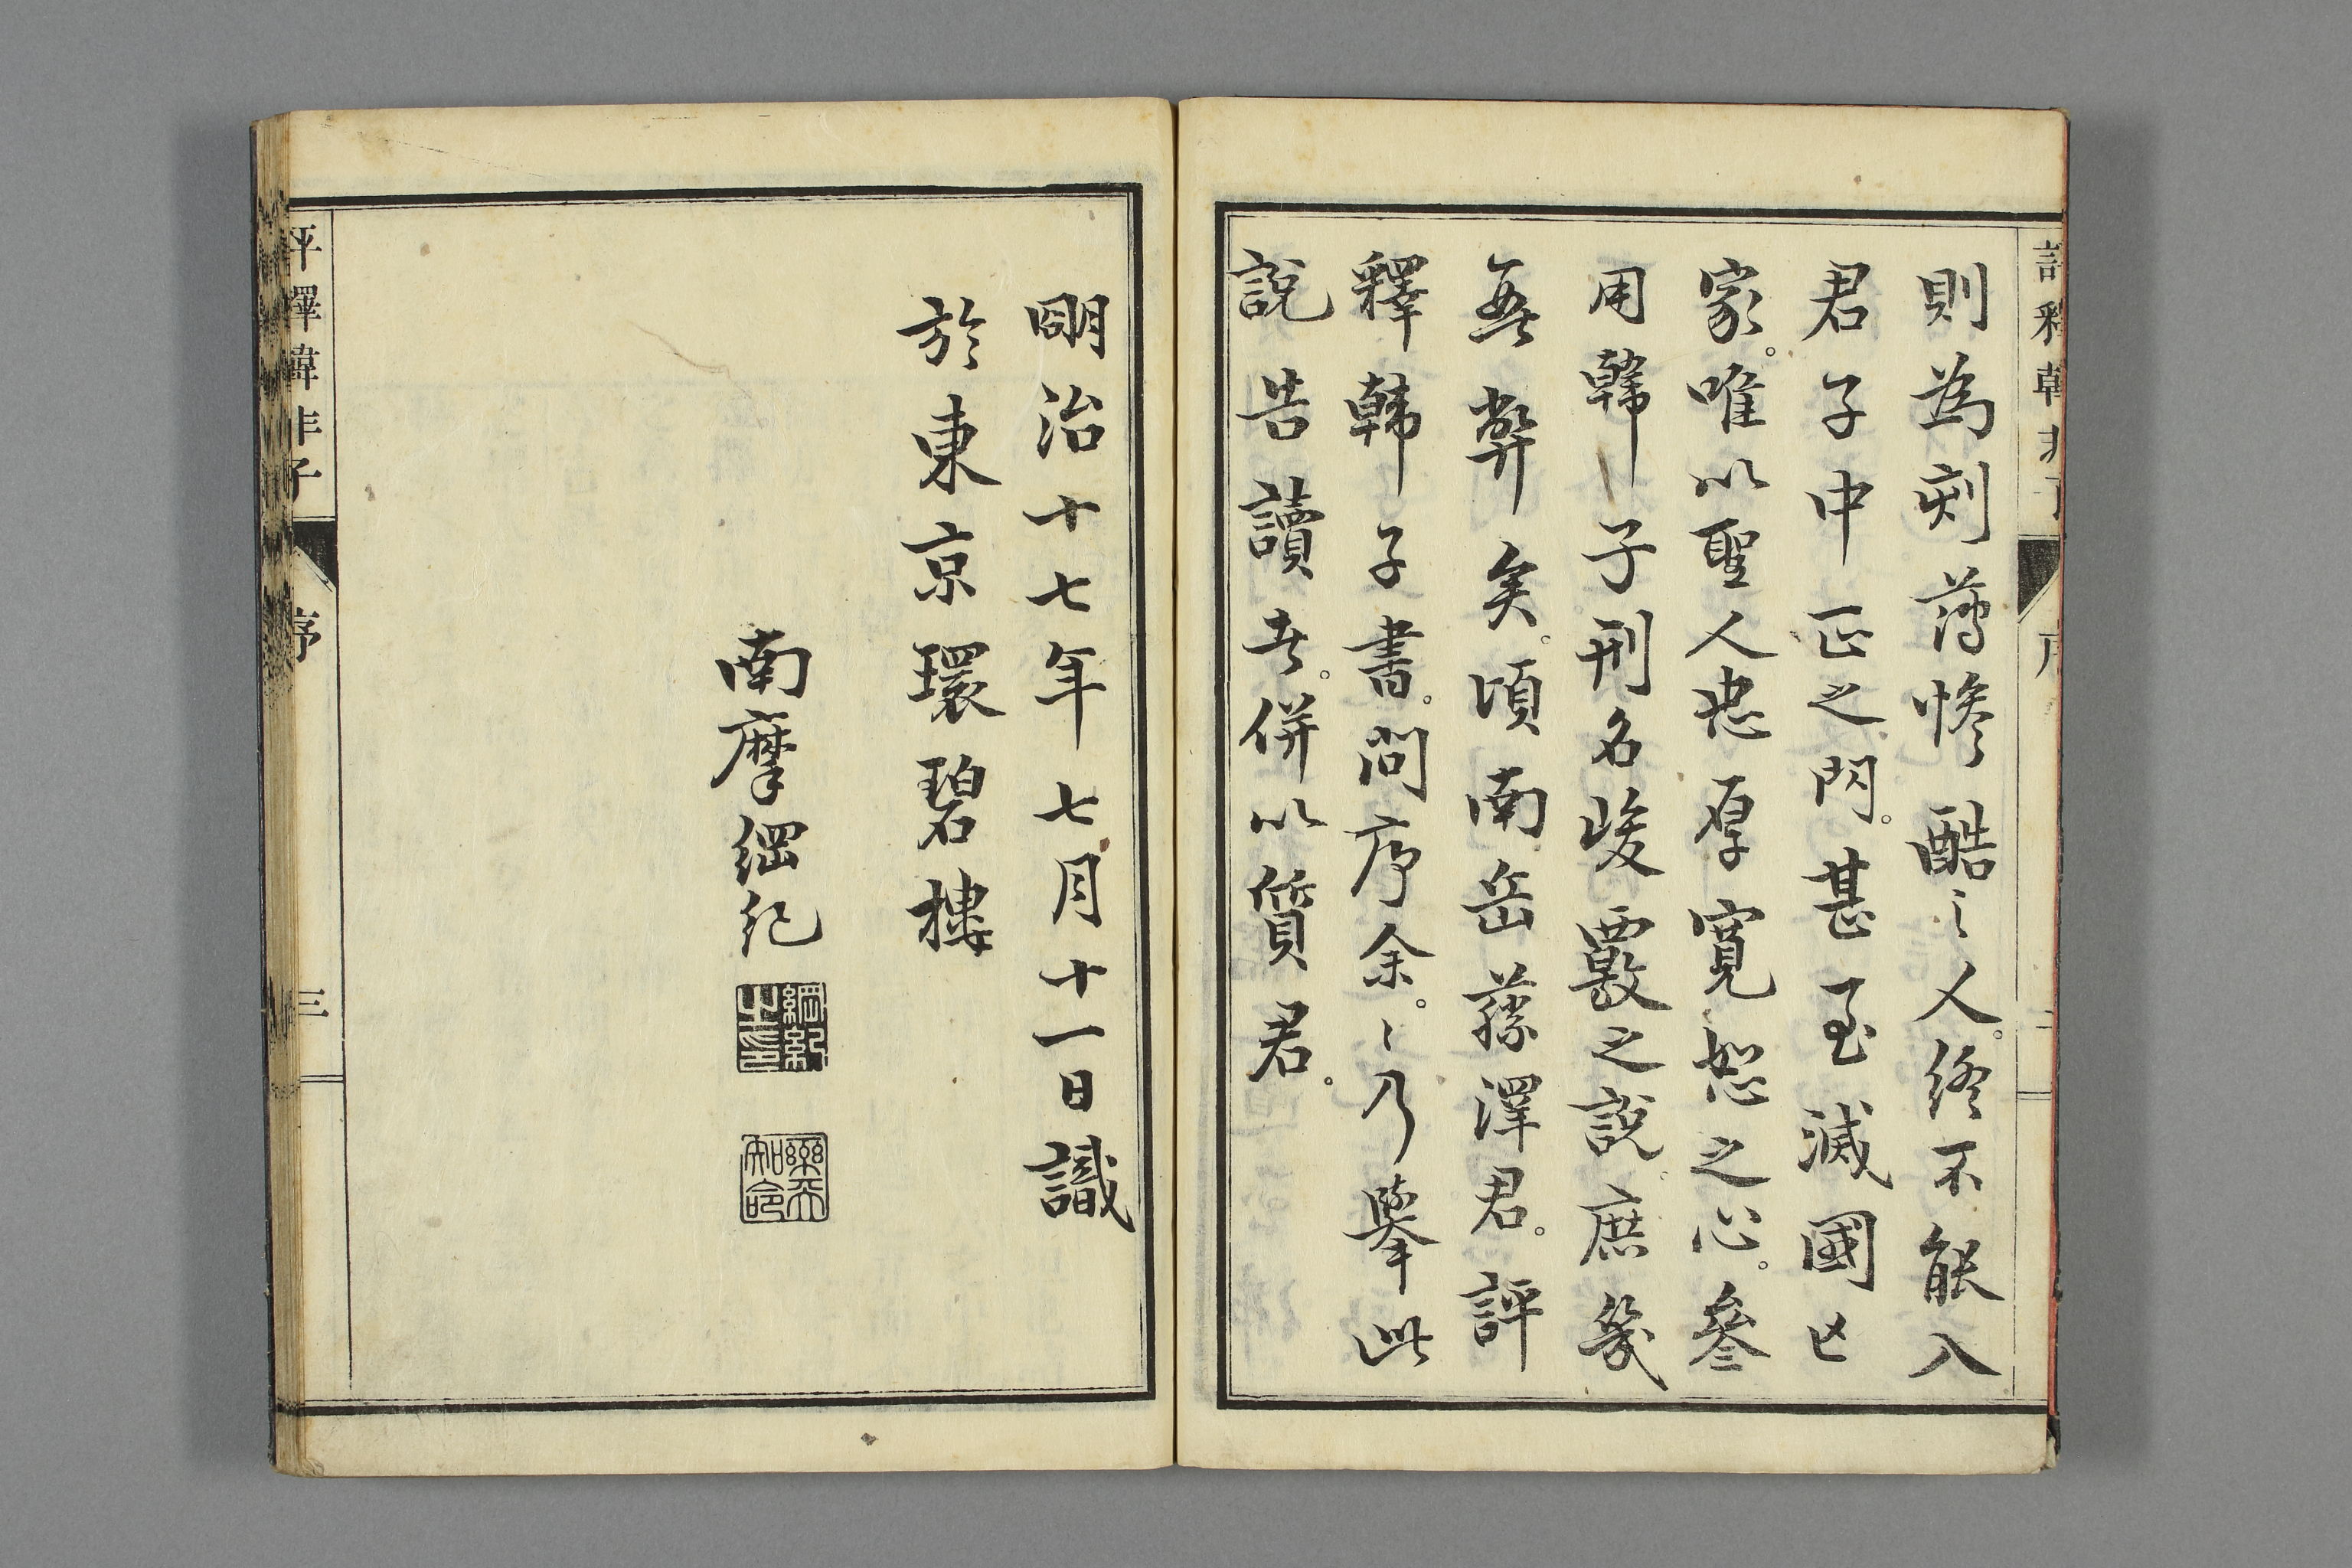 則為刻薄惨酷之人。終不能入
君子中正之門。甚至滅國亡
家。唯以聖人忠厚寬恕之心。參
用韓子刑名峻覈之說。庶幾
無弊矣。頃南岳藤澤君。評
釋韓子書。問序余。〻乃擧此
說告讀者。併以質君。
明治十七年七月十一日識
於東京環碧樓
南摩綱紀
綱紀之印
樂天知命
評釋韓非子
序
三